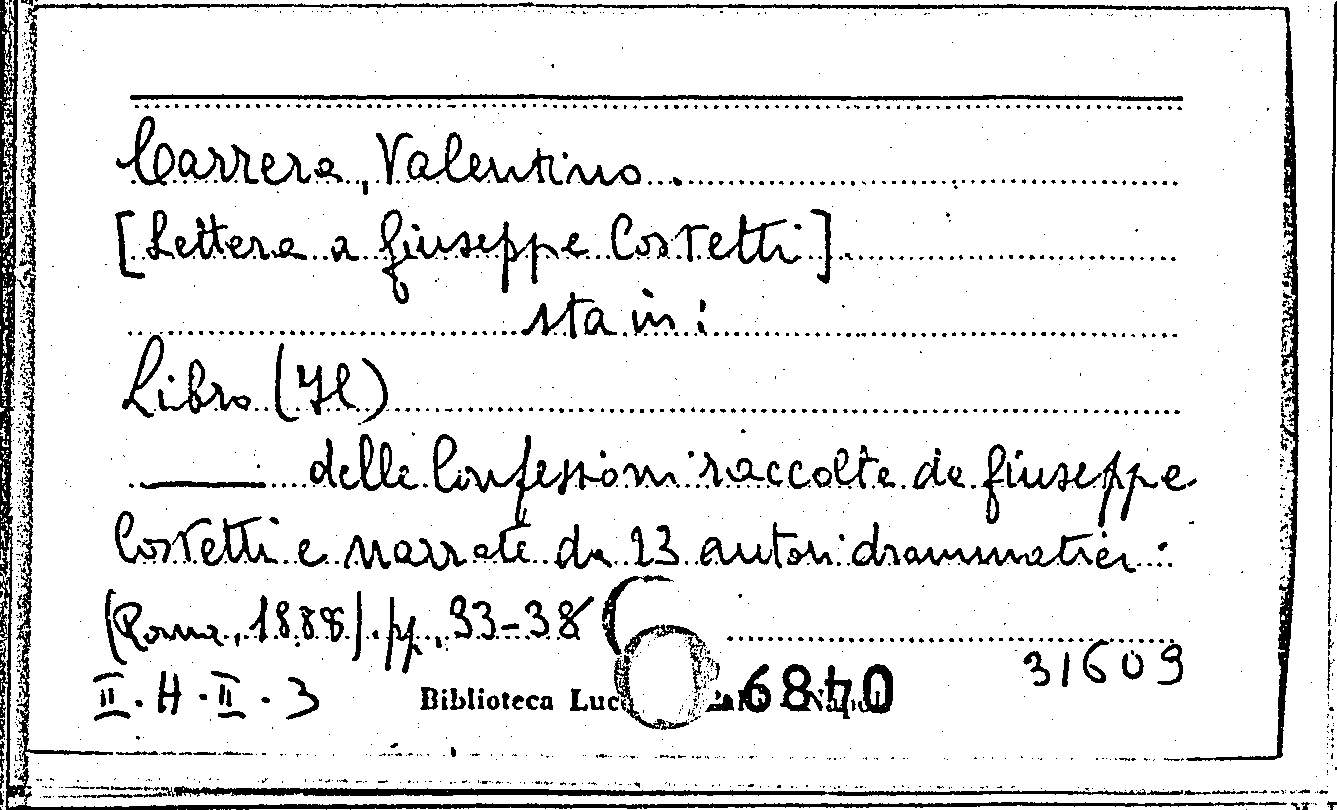 Carrera, Valentino.
[Lettera a Giuseppe Costetti].
sta in:
Libro (Il)
——— delle Confessioni raccolte da Giuseppe
Costetti e narrate da 23 autori drammatici:
(Roma, 1888). pp. 33-38
31609
II. H. II. 3
Biblioteca 6840